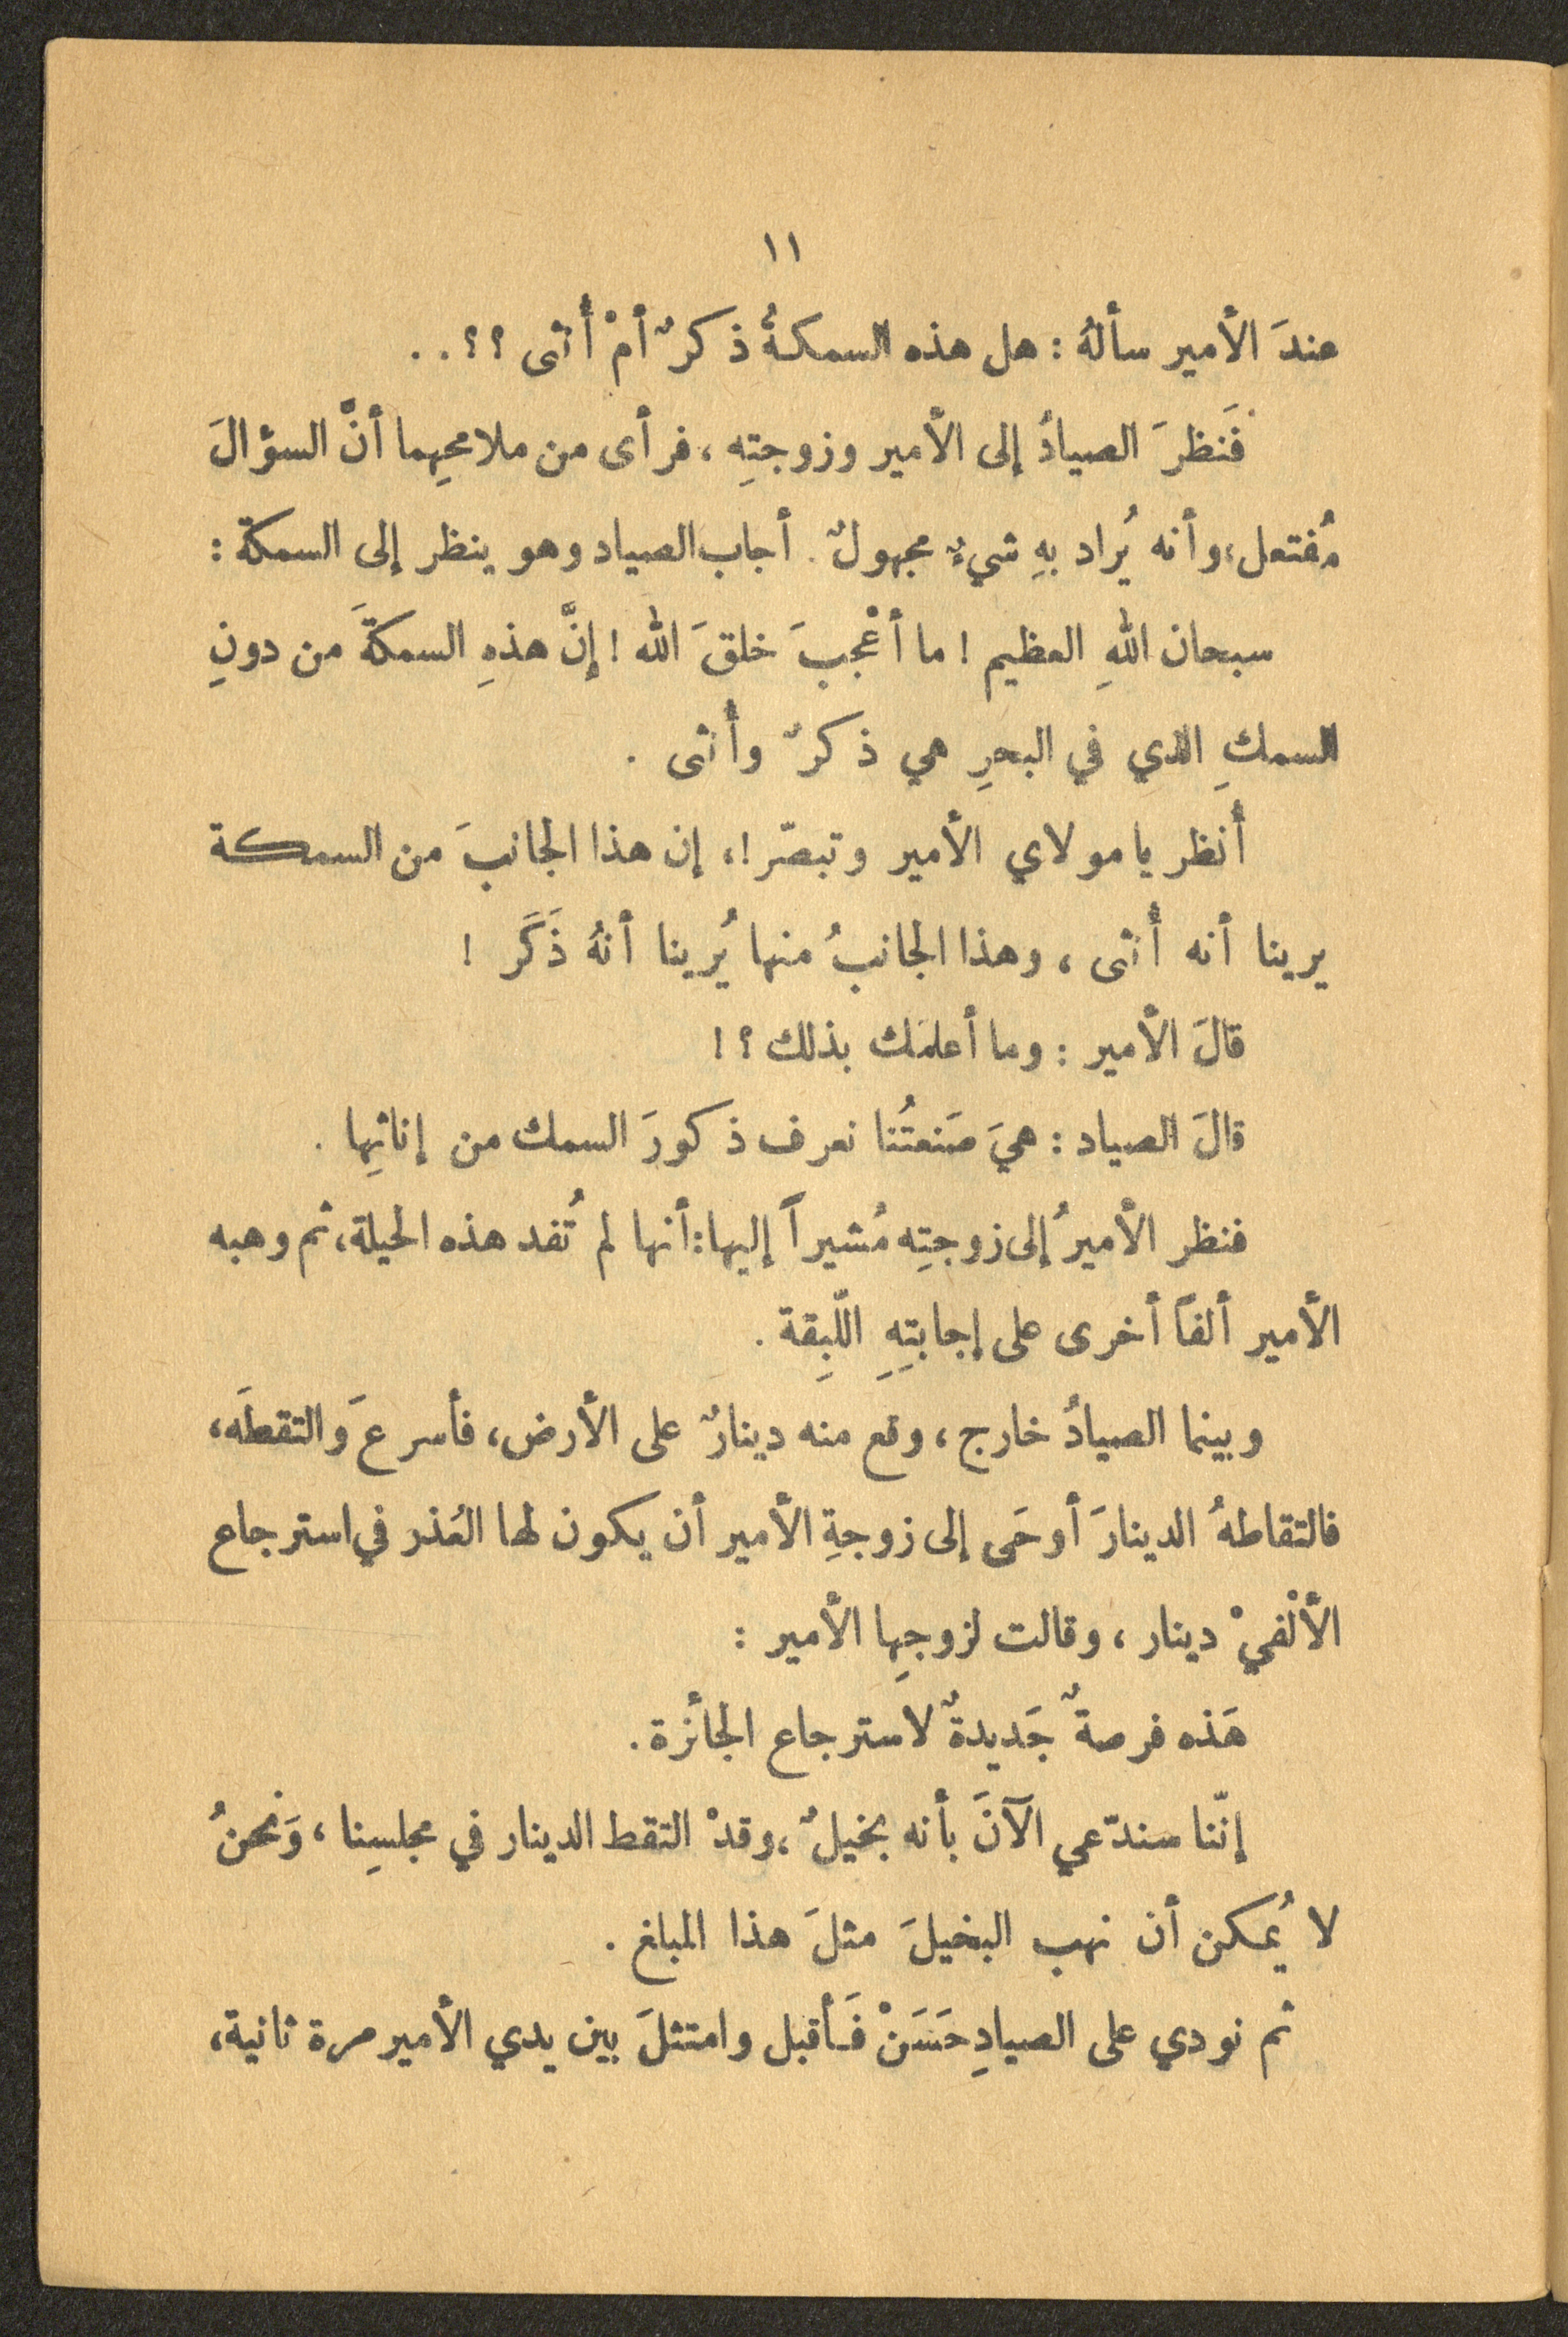 ١١
عندَ الأمير سألهُ : هل هذه السمكةُ ذكرٌ أمْ أُنثى ؟؟..
فَنظرَ الصيادُ إلى الأمير وزوجتِه ، فرأى من ملامحِهما أنَّ السؤالَ
مُفتعل، وأنه يُراد بهِ شيءٌ مجهولٌ . أجاب الصياد وهو ينظر إلى السمكة :
سبحان اللهِ العظيم ! ما أعْجبَ خلقَ الله ! إنَّ هذهِ السمكةَ من دونِ
السمكِ الذي في البحرِ هي ذكرٌ وأُنثى .
أُنظر يا مولاي الأمير وتبصّر !، إن هذا الجانبَ من السمكة
يرينا أنه أُنثى ، وهذا الجانبُ منها يُرينا أنهُ ذَكَر !
قالَ الأمير : وما أعلمَك بذلك ؟ !
قالَ الصياد : هيَ صَنعتُنا نعرف ذكورَ السمك من إناثِها .
فنظر الأميرُ إلى زوجتِه مُشيراً إليها : أنها لم تُفد هذه الحيلة، ثم وهبه
الأمير ألفاً أخرى على إجابتِهِ اللّبِقة .
وبينما الصيادُ خارج ، وقع منه دينارٌ على الأرض، فأسرعَ والتقطَه،
فالتقاطهُ الدينارَ أوحَى إلى زوجةِ الأمير أن يكون لها العُذر في استرجاع
الألْفيْ دينار ، وقالت لزوجِها الأمير :
هَذه فرصةٌ جَديدةٌ لاسترجاع الجائزة .
إنّنا سندّعي الآنَ بأنه بخيلٌ ، وقدْ التقط الدينار في مجلسِنا ، وَنحنُ
لا يُمكن أن نهب البخيلَ مثلَ هذا المبلغ .
ثم نودي على الصيادِ حَسَنْ فَأقبل وامتثلَ بين يدي الأمير مرة ثانية،